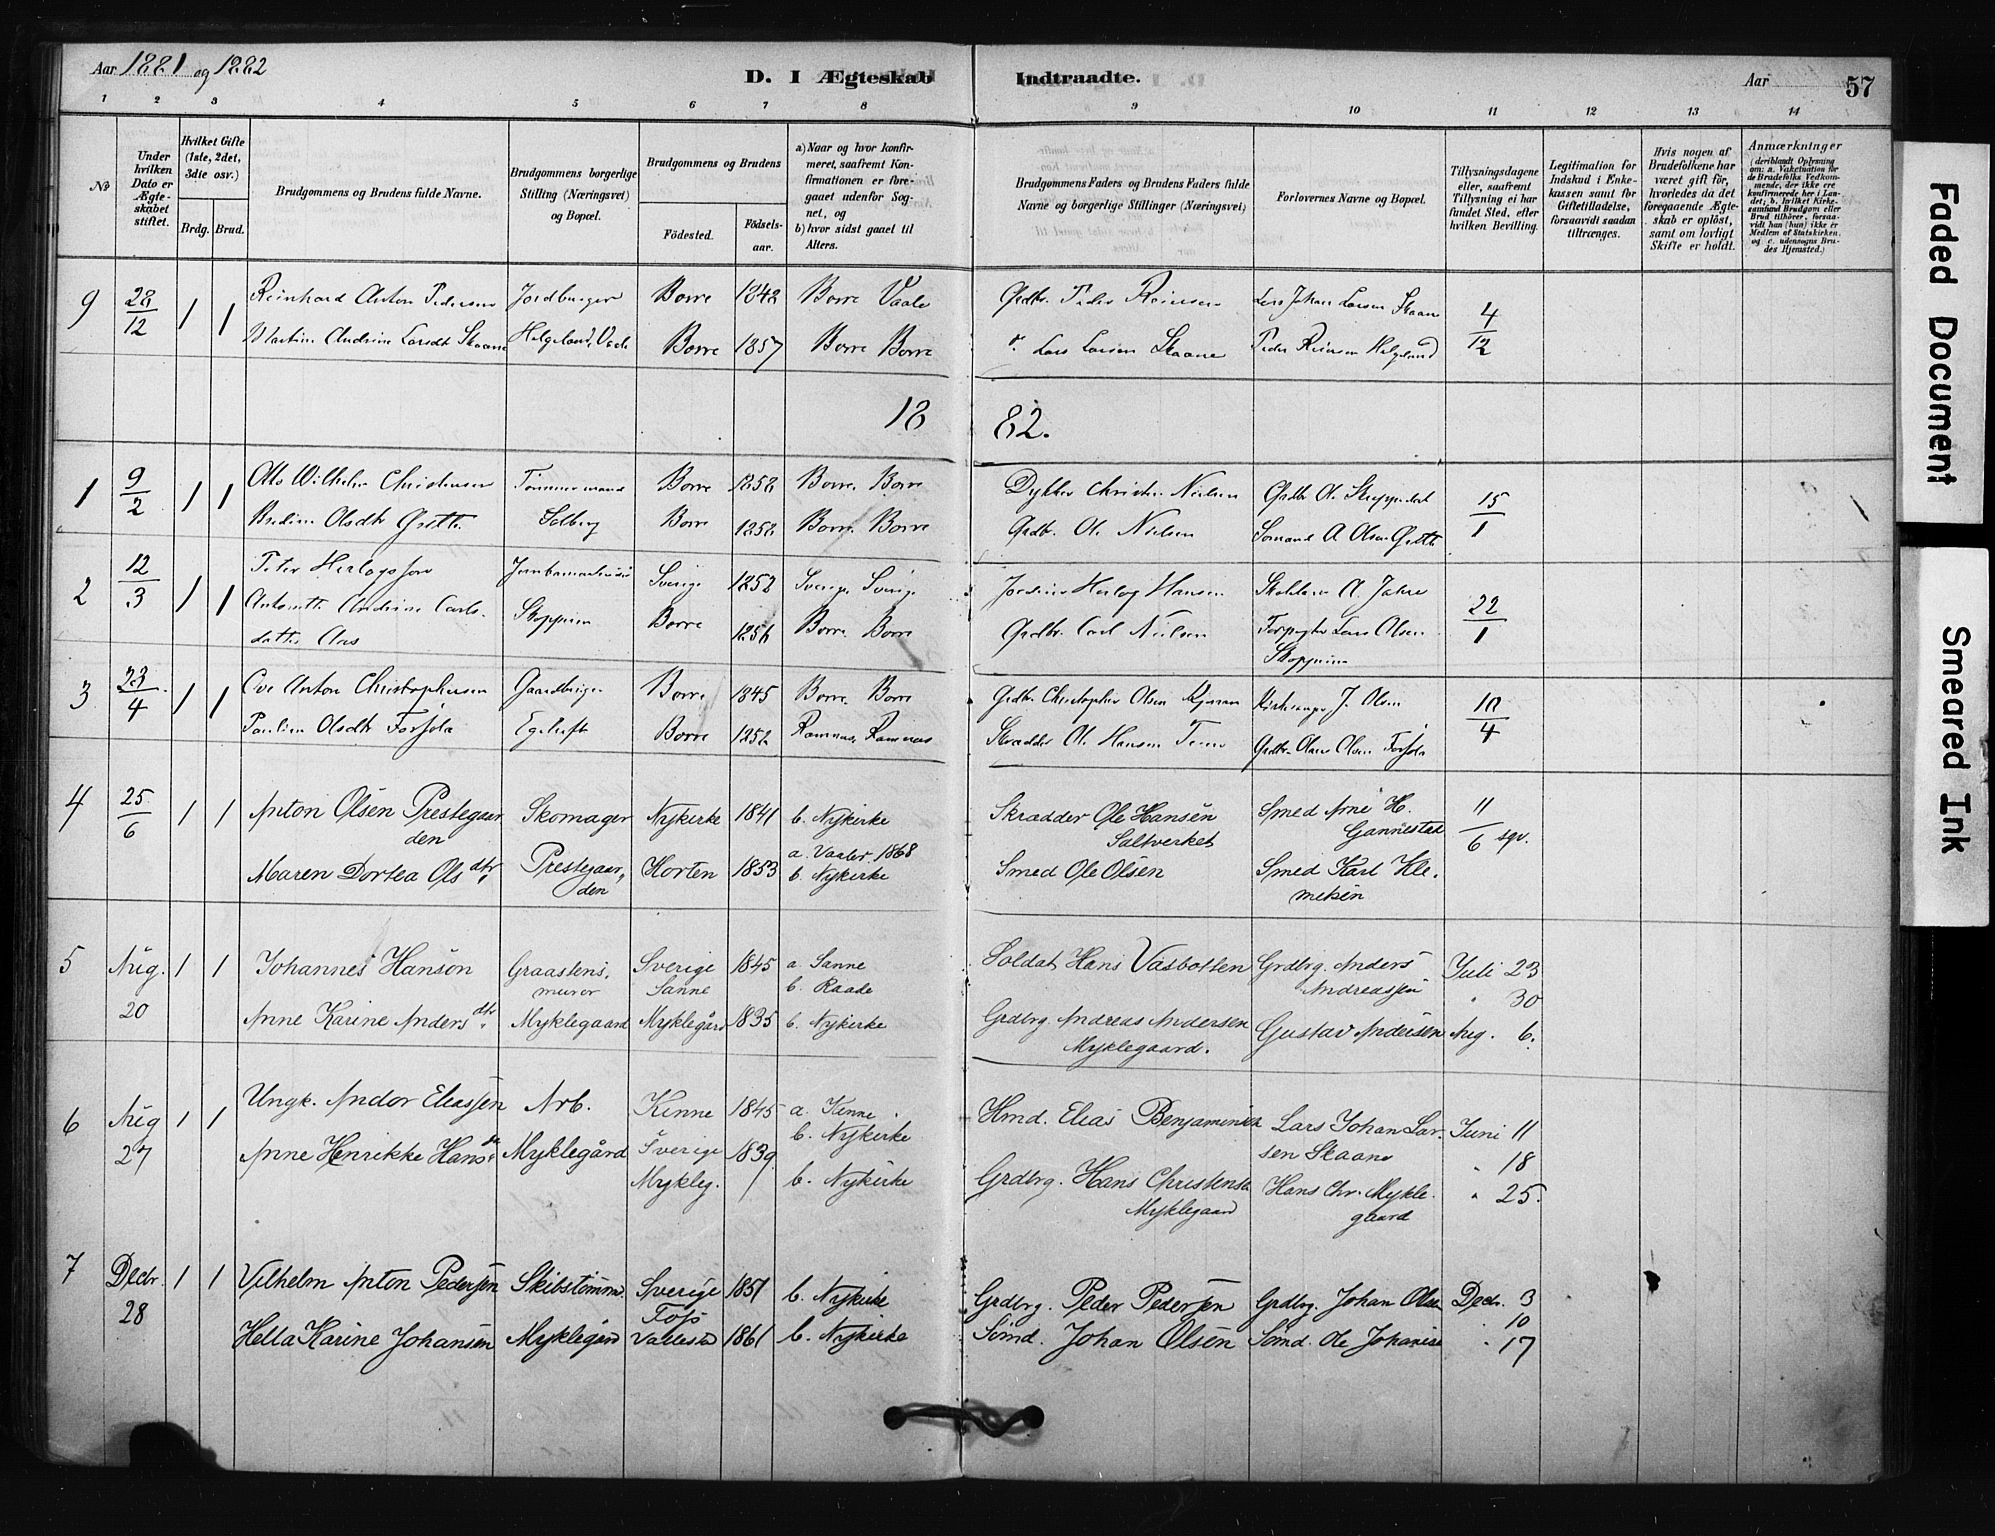 Aar 1881 og 1882
D. I Ægteskab Indtraadte.
Aar 57
1 2 3 4 5 6 7 8 9 10 11 12 13 14
No
Under hvilken Dato er Ægteskabet stiftet.
Hvilket Gifte (1ste, 2det, 3die osv.)
Brdg. Brud.
Brudgommens og Brudens fulde Navne.
Brudgommens borgerlige Stilling (Næringsvei) og Bopæl.
Brudgommens og Brudens
Födested. Födselsaar.
a) Naar og hvor konfirmeret, saafremt Konfirmationen er foregaaet udenfor Sognet, og
b) hvor sidst gaaet til Alters.
Brudgommens Faders og Brudens Faders fulde Navne og borgerlige Stillinger (Næringsvei)
Forlovernes Navne og Bopæl.
Tillysningsdagene eller, saafremt Tillysning ei har fundet Sted, efter hvilken Bevilling.
Legitimation for Indskud i Enkekassen samt for Giftetilladelse, forsaavidt saadan tiltrænges.
Hvis nogen af Brudefolkene har været gift för, hvorledes da det foregaaende Ægteskab er oplöst, samt om lovligt Skifte er holdt.
Anmærkninger
(deriblandt Oplysning om: a. Vaksination for de Brudefolks Vedkommende, der ikke ere konfirmerede her i Landet; b. hvilket Kirkesamfund Brudgom eller Brud tilhörer, forsaavidt han (hun) ikke er Medlem af Statskirken, og c. udensogns Brudes Hjemsted.)
9 28/12 1 1 Reinhard Anton Pedersen Jordbruger Borre 1842 Borre Vaale Grdbr. Peder Reiersen Lars Johan Larsen Skaane 4/12
Martine Andrine Larsdt Skaane Helgeland, Vaale Borre 1857 Borre Borre Lars Larsen Skaane Peder Reiersen Helgeland
1882.
1 9/2 1 1 Otto Wilhelm Christensen Tömmermand Borre 1858 Borre. Borre Dykker Christen Nielsen Grdbr Ol. 15/1
Olsdtr Solberg Borre 1858 Borre. Borre Grdbr. Ol. Nielsen A Olsen
2 12/3 1 1 Peter Herlogsson Sverige 1858 Sverige, Sverige Herlog Hansen A. Jahre 22/1
Antonette Andrine Carlsdatter Aas Skoppum Borre 1856 Borre. Borre Grdbr. Carl Nielsen Lars Olsen
Skoppum
3 23/4 1 1 Anton Christophersen Gaardbruger Borre 1845 Borre. Borre Grdbr. Christopher Olsen Kirkesanger J. Olsen 10/4
Pauline Olsdtr Borre 1858 Ramnæs, Ramnæs Skrædder Ol. Hansen Grdbr. Olaus Olsen
4 25/6 1 1 Anton Olsen Prestegaarden Skomager Nykirke 1841 b. Nykirke Skrædder Ole Hansen Saltverket Smed Arne H. Gannestad 11/6 sqv.
Maren Dortea Olsdtr. Prestegaarden Horten 1853 a. Vaaler 1868 b. Nykirke Smed Ole Olsen Smed Karl Klemetsen
5 Aug. 20 1 1 Johannes Hanson Graastensmurer Sverige Sanne 1845 a. Sanne b. Raade Soldat Hans Vasbotten Grdbrg. Anders Andreassen Juli 23
" 30
Anne Karine Andersdtr. Myklegaard Myklegård 1835 b. Nykirke Grdbrg. Andreas Andersen Myklegaard. Gustav Andersen Aug. 6.
6 Aug 27 1 1 Ungk. Andor Eliassen Arb. Kinne 1845 a. Kinne. b. Nykirke Hmd. Elias Benjaminsen Lars Johan Larsen Skaane Juni 11
" 18
Anne Henrikke Hansdtr Myklegård Sverige Mykleg. 1839 b. Nykirke Grdbrg. Hans Christensen Myklegaard Hans Chr. Myklegaard " 25.
7 Decbr. 28 1 1 Vilhelm Anton Pedersen Skibstömm. Sverige Foss 1851 b. Nykirke Grdbrg. Peder Pedersen Grdbrg. Johan Olsen Decbr. 3
" 10
Hella Karine Johansen Myklegård 1861 b. Nykirke Sömd. Johan Olsen Sömd. Ole Johansen " 17
Faded Document
Smeared Ink